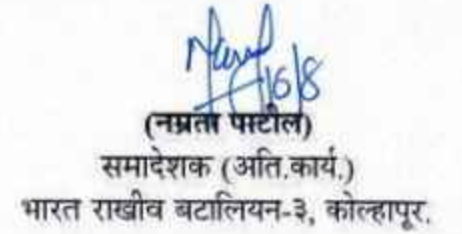 16/8
(नम्रता पाटील)
समादेशक (अति.कार्य.)
भारत राखीव बटालियन-३, कोल्हापूर.